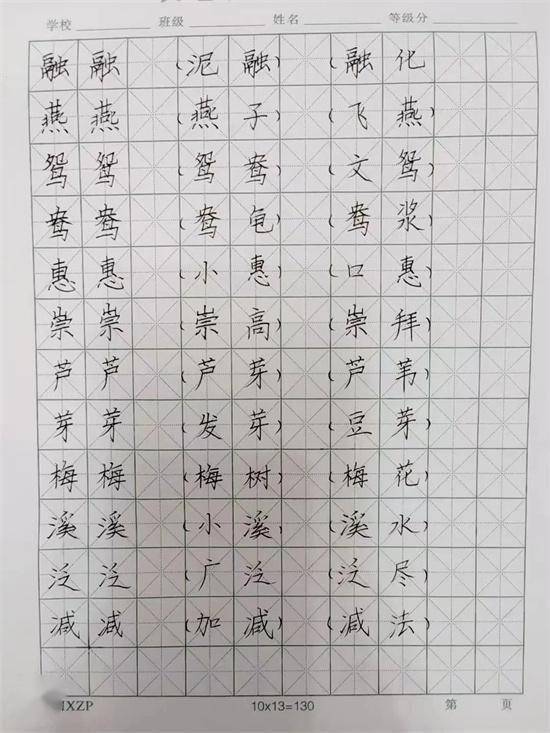 学校 班级 姓名 等级分
融 融 (泥 融) (融 化
燕 燕 (燕 子) (飞 燕)
鸳 鸳 (鸳 鸯) (文 鸳)
鸯 鸯 (鸯 龟) (鸯 浆)
惠 惠 (小 惠) (口 惠)
崇 崇 (崇 高) (崇 拜)
芦 芦 (芦 芽) (芦 苇)
芽 芽 (发 芽) (豆 芽)
梅 梅 (梅 树) (梅 花)
溪 溪 (小 溪) (溪 水)
泛 泛 (广 泛) (泛 尽)
减 减 (加 减) (减 法)
IXZP 10x13=130 第 页